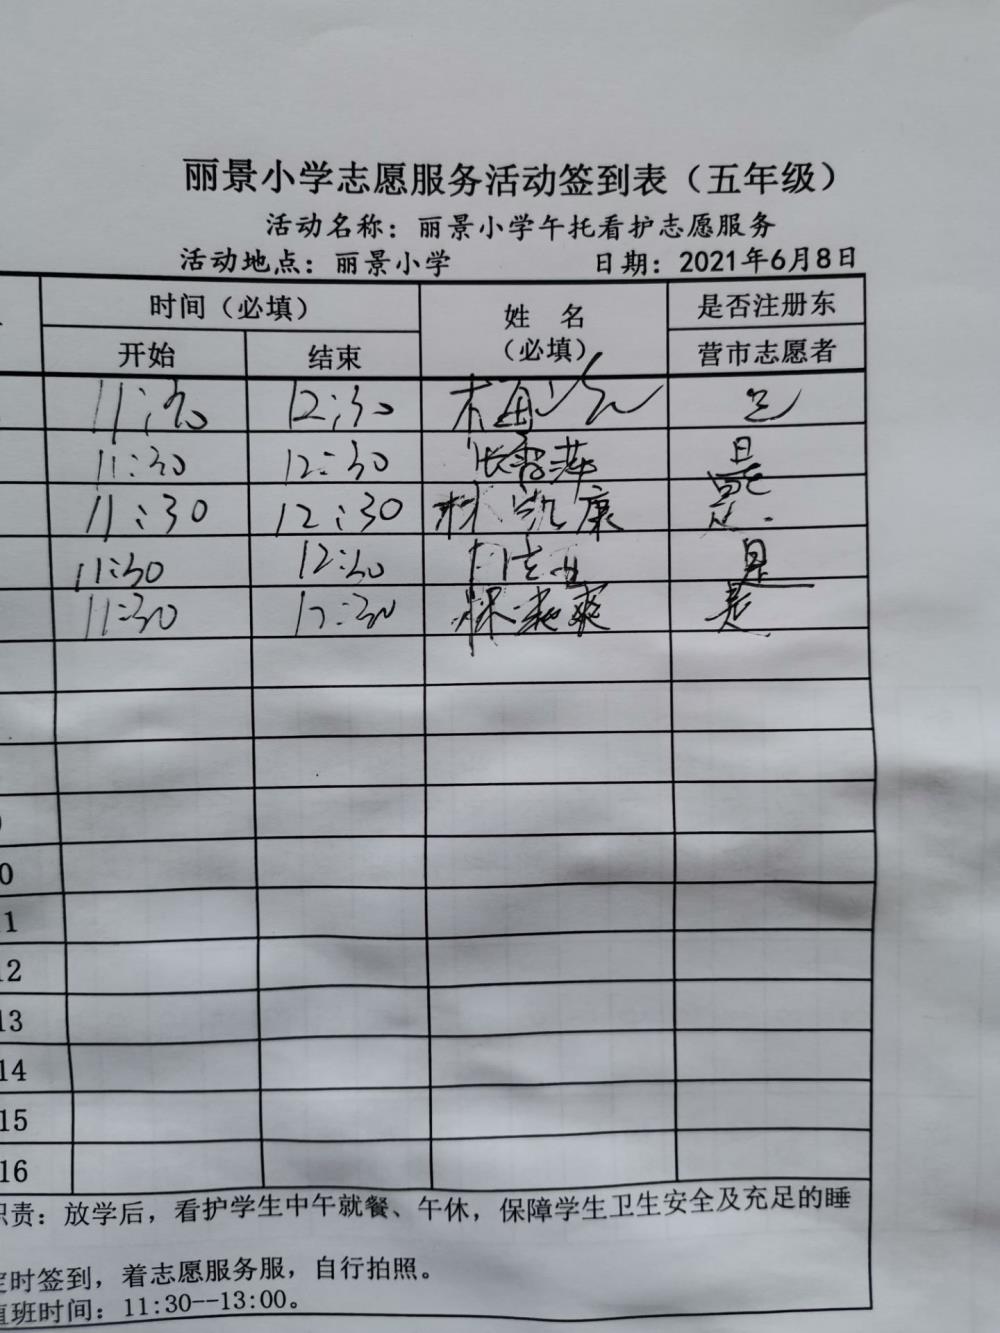 丽景小学志愿服务活动签到表（五年级）
活动名称：丽景小学午托看护志愿服务
活动地点：丽景小学 日期：2021年6月8日
时间（必填） 姓 名 （必填） 是否注册东营市志愿者
开始 结束
11:30 12:30 是
11:30 12:30 是
11:30 12:30 林凯康 是.
11:30 12:30 是
11:30 12:30 是
10
11
12
13
14
15
16
职责：放学后，看护学生中午就餐、午休，保障学生卫生安全及充足的睡
定时签到，着志愿服务服，自行拍照。
值班时间：11:30--13:00。